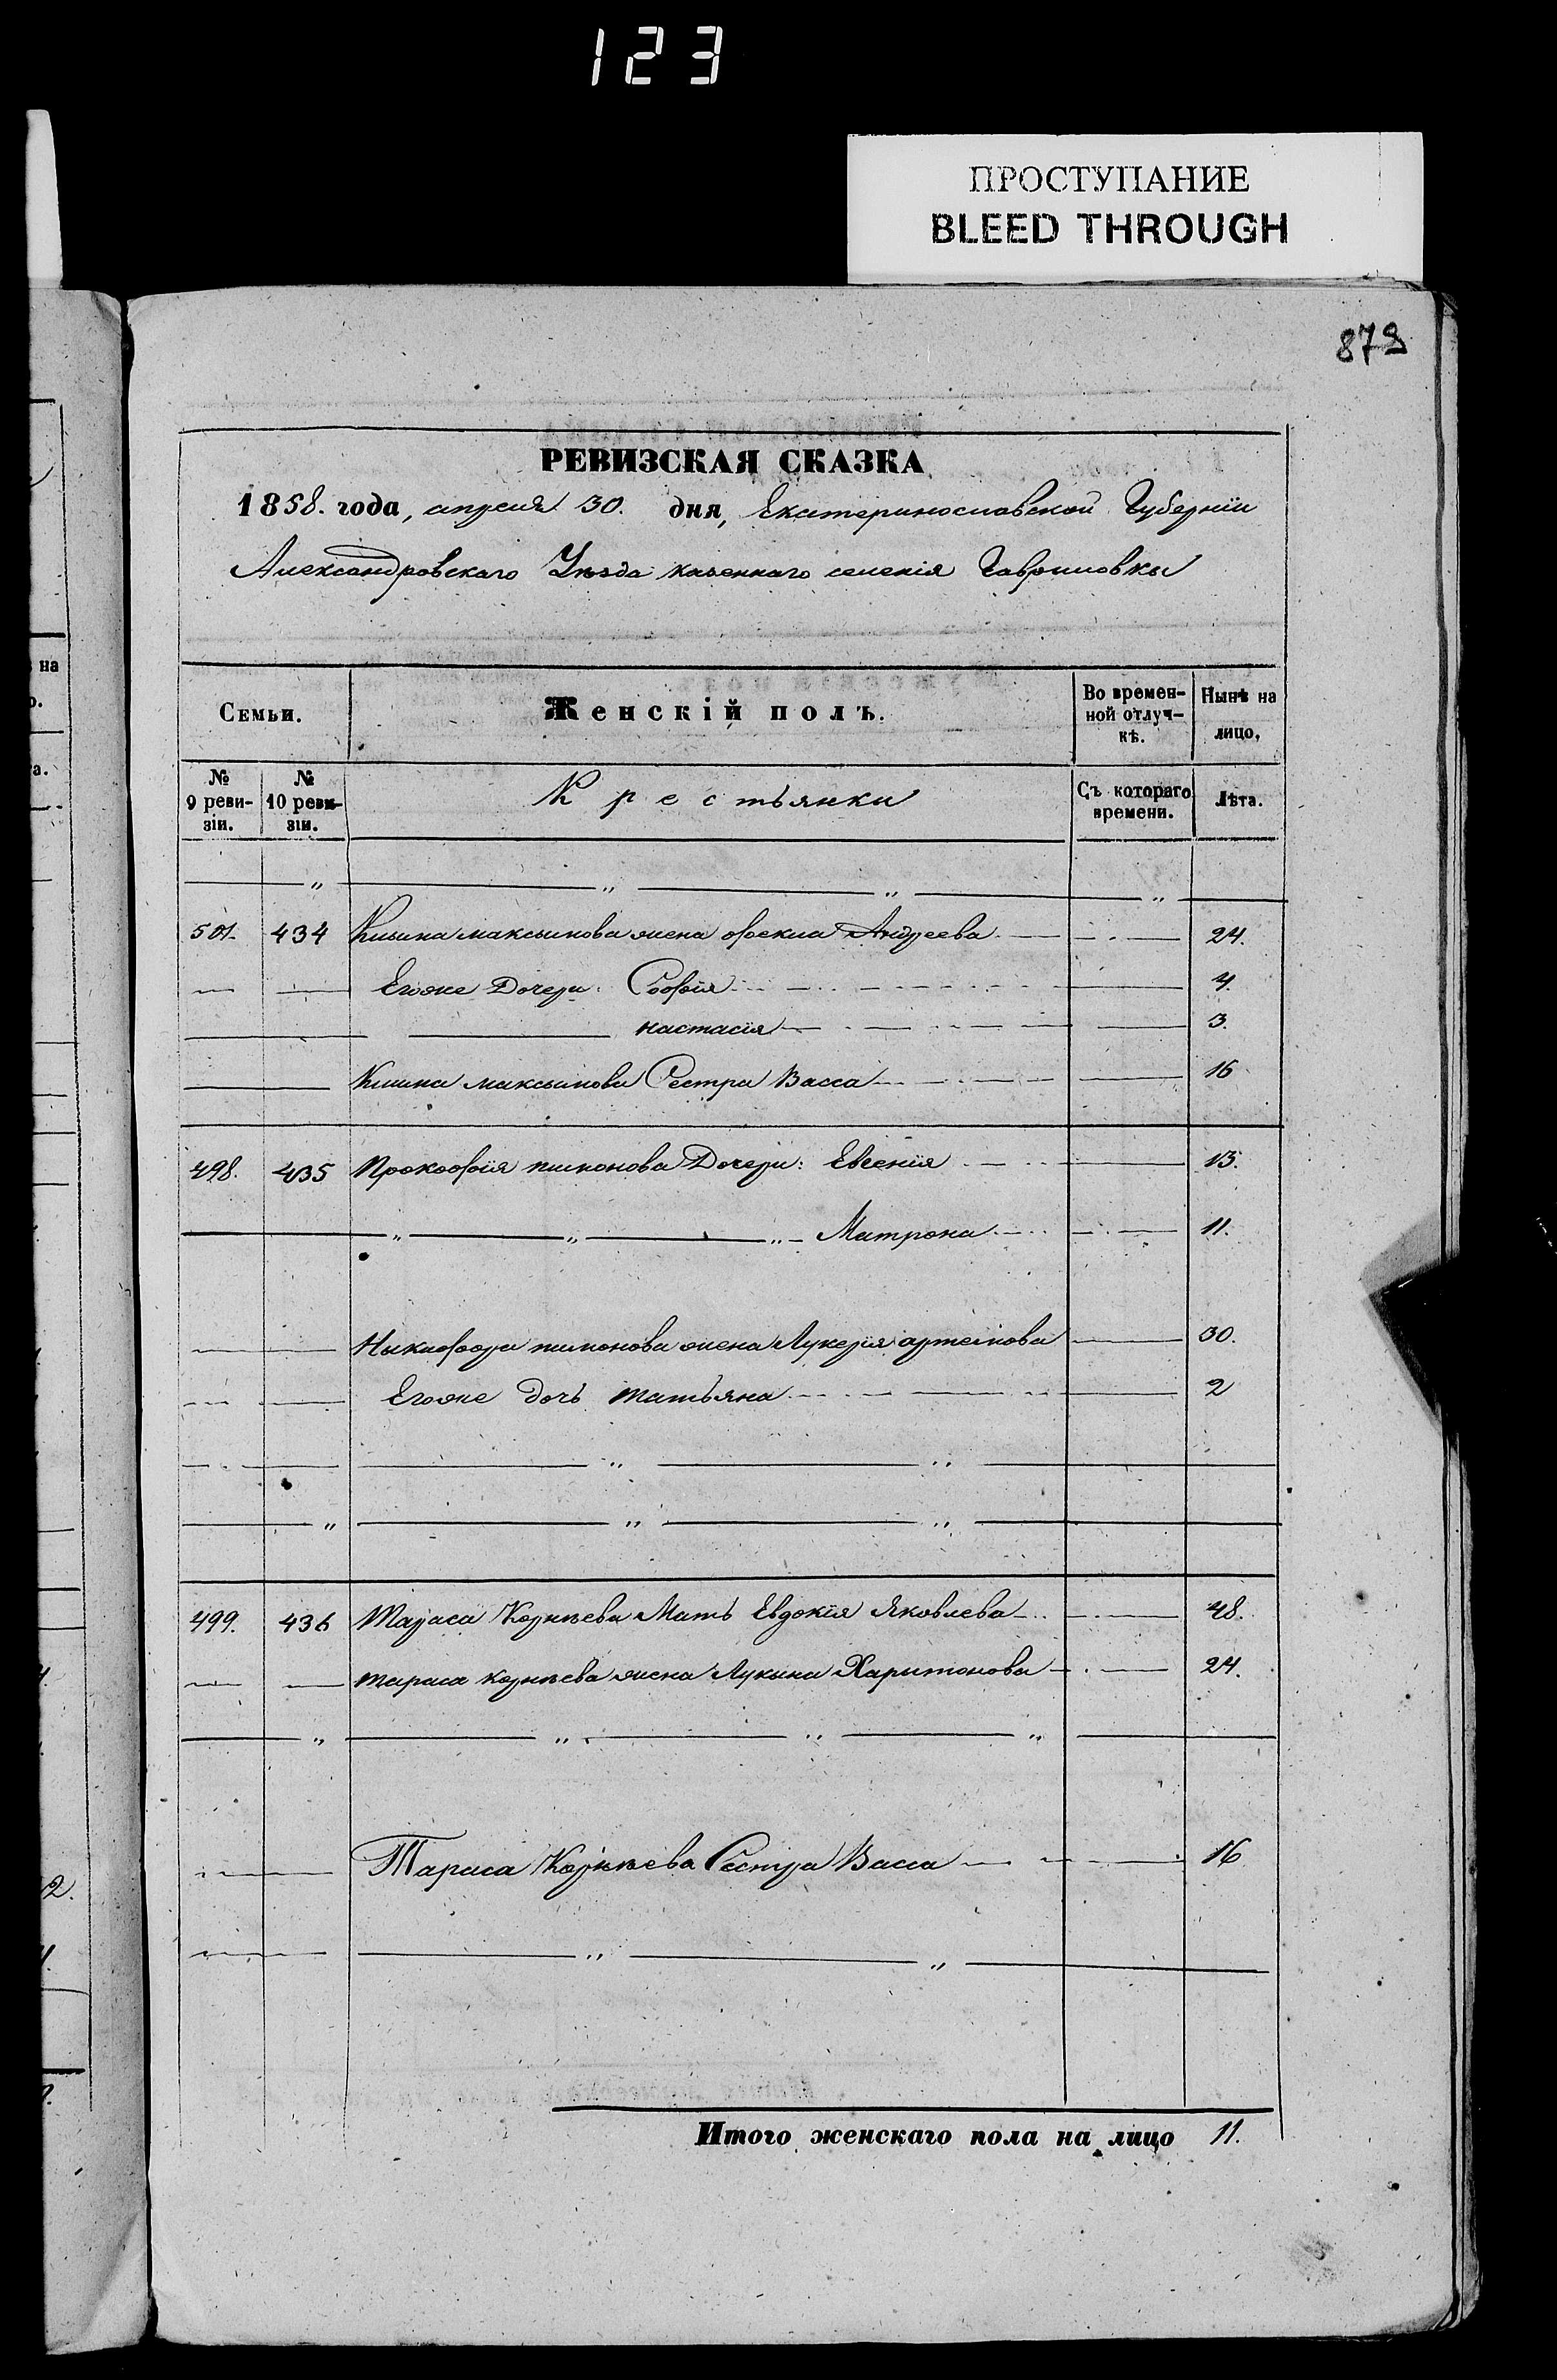 123
ПРОСТУПАНИЕ
BLEED THROUGH
879
РЕВИЗСКАЯ СКАЗКА
1858. года, апреля 30. дня, Екатеринославской Губерніи
Александровскаго Уѣзда казеннаго селенія Гавриловки
Семьи. Женскій полъ. Во времен-ной отлуч-кѣ. Нынѣ на лицо.
№ 9 реви-зіи. № 10 реви-зіи. Крестьянки Съ котораго времени. Лѣта.
501. 434 Климa максимова жена Фекла Андреева 24.
Егоже Дочери: Софія 4.
настасія 3.
Клима максимова Сестра Васса 16
498. 435 Прокофія пимонова Дочери: Евгенія 13.
Матрона 11.
Никифора пимонова жена Лукерія артемова 30.
Егоже дочь татьяна 2
499. 436 Тараса Корнѣева Мать Евдокія Яковлева 48.
тараса корнѣева жена Лукина Харитонова 24.
Тараса Корнѣева Сестра Васса 16
Итого женскаго пола на лицо 11.